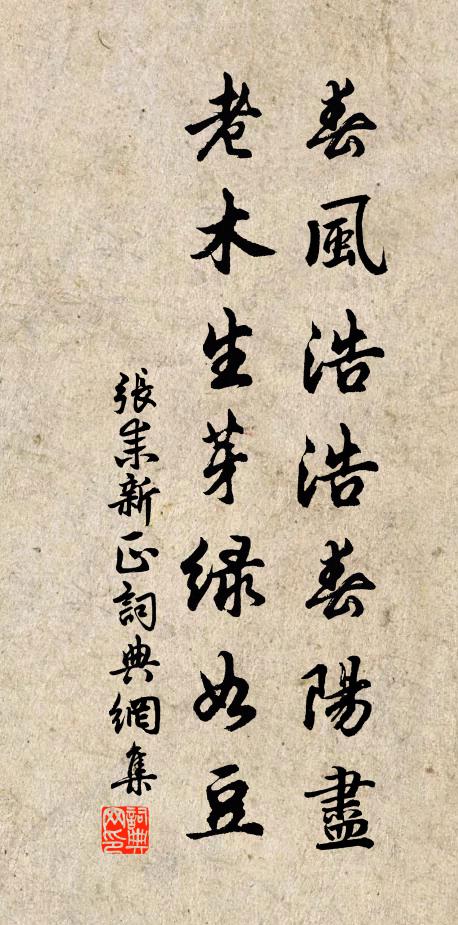 春風浩浩春陽盡
老木生芽綠如豆
張耒新正詞典網集
詞典網印